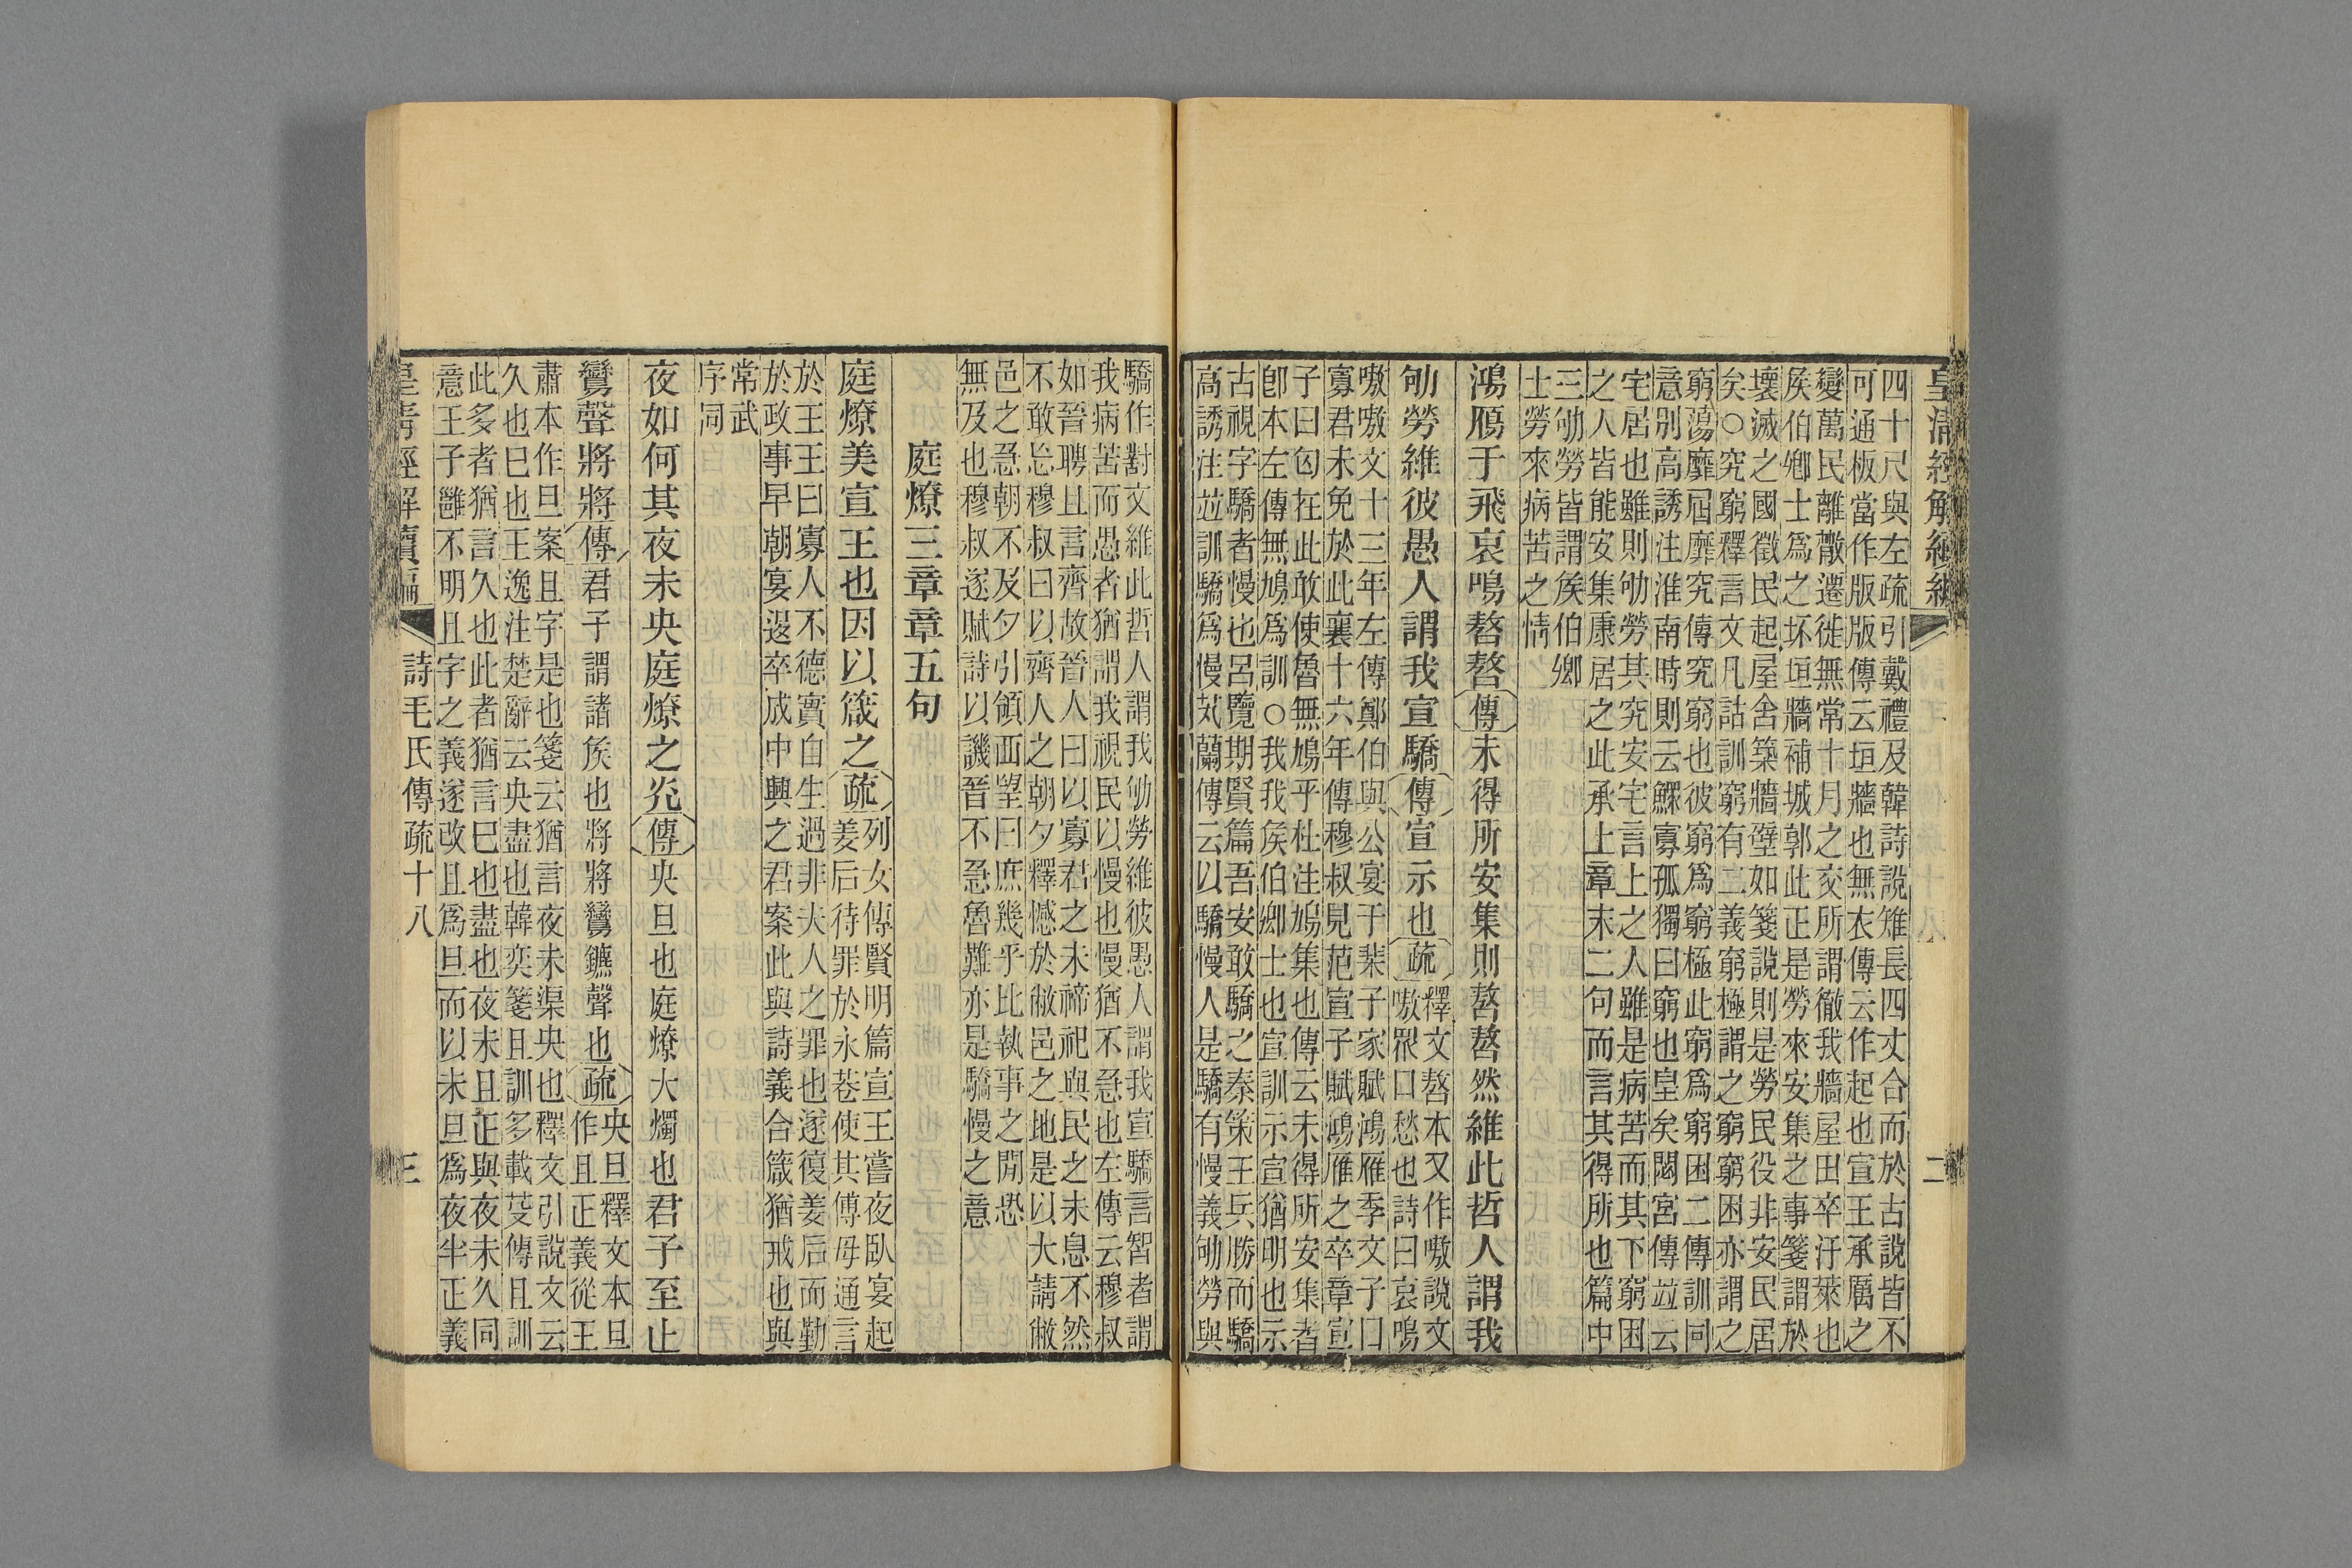 皇清經解續編
二
四十尺與左疏引戴禮及韓詩說雉長四丈合而於古說皆不
可通板當作版版傳云垣牆也無衣傳云作起也宣王承厲之
變萬民離散遷徙無常十月之交所謂徹我牆屋田卒汙萊也
矦伯鄉士爲之坏垣牆補城郭此正是勞來安集之事箋謂於
壞滅之國徵民起屋舍築牆壁如箋說則是勞民役非安民居
矣○究窮釋言文凡詁訓窮有二義窮極謂之窮窮困亦謂之
窮蕩靡屆靡究傳究窮也彼窮爲窮極此窮爲窮困二傳訓同
意別高誘注淮南時則云鰥寡孤獨曰窮也皇矣閟宮傳竝云
宅居也雖則劬勞其究安宅言上之人雖是病苦而其下窮困
之人皆能安集康居之此承上章末二句而言其得所也篇中
三劬勞皆謂矦伯卿
士勞來病苦之情
鴻鴈于飛哀鳴嗸嗸傳未得所安集則嗸嗸然維此哲人謂我
劬勞維彼愚人謂我宣驕傳宣示也疏釋文嗸本又作嗷說文
嗷眾口愁也詩曰哀鳴
嗷嗷文十三年左傳鄭伯與公宴于棐子家賦鴻雁季文子曰
寡君未免於此襄十六年傳穆叔見范宣子賦鴻雁之卒章宣
子曰匄在此敢使魯無鳩乎杜注鳩集也傳云未得所安集者
卽本左傳無鳩爲訓○我我矦伯卿士也宣訓示宣猶明也示
古視字驕者慢也呂覽期賢篇吾安敢驕之秦策王兵勝而驕
高誘注竝訓驕爲慢芄蘭傳云以驕慢人是驕有慢義劬勞與
驕作對文維此哲人謂我劬勞維彼愚人謂我宣驕言智者謂
我病苦而愚者猶謂我視民以慢也慢猶不急也左傳云穆叔
如晉聘且言齊故晉人曰以寡君之未禘祀與民之未息不然
不敢忘穆叔曰以齊人之朝夕釋憾於敝邑之地是以大請敝
邑之急朝不及夕引領西望曰庶幾乎比執事之閒恐
無及也穆叔遂賦詩以譏晉不急魯難亦是驕慢之意
庭燎三章章五句
庭燎美宣王也因以箴之疏列女傳賢明篇宣王嘗夜臥宴起
姜后待罪於永巷使其傅母通言
於王王曰寡人不德實自生過非夫人之罪也遂復姜后而勤
於政事早朝宴退卒成中興之君案此與詩義合箴猶戒也與
常武
序同
夜如何其夜未央庭燎之光傳央旦也庭燎大燭也君子至止
鸞聲將將傳君子謂諸矦也將將鸞鑣聲也疏央旦釋文本旦
作且正義從王
肅本作旦案且字是也箋云猶言夜未渠央也釋文引說文云
久也巳也王逸注楚辭云央盡也韓奕箋且訓多載芟傳且訓
此多者猶言久也此者猶言巳也盡也夜未且正與夜未久同
意王子雝不明且字之義遂改且爲旦而以未旦爲夜半正義
皇清經解續編
詩毛氏傳疏十八
三